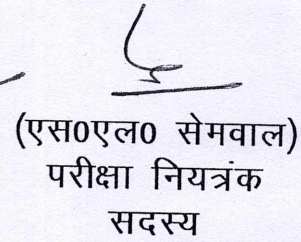 (एस0एल0 सेमवाल)
परीक्षा नियत्रंक
सदस्य